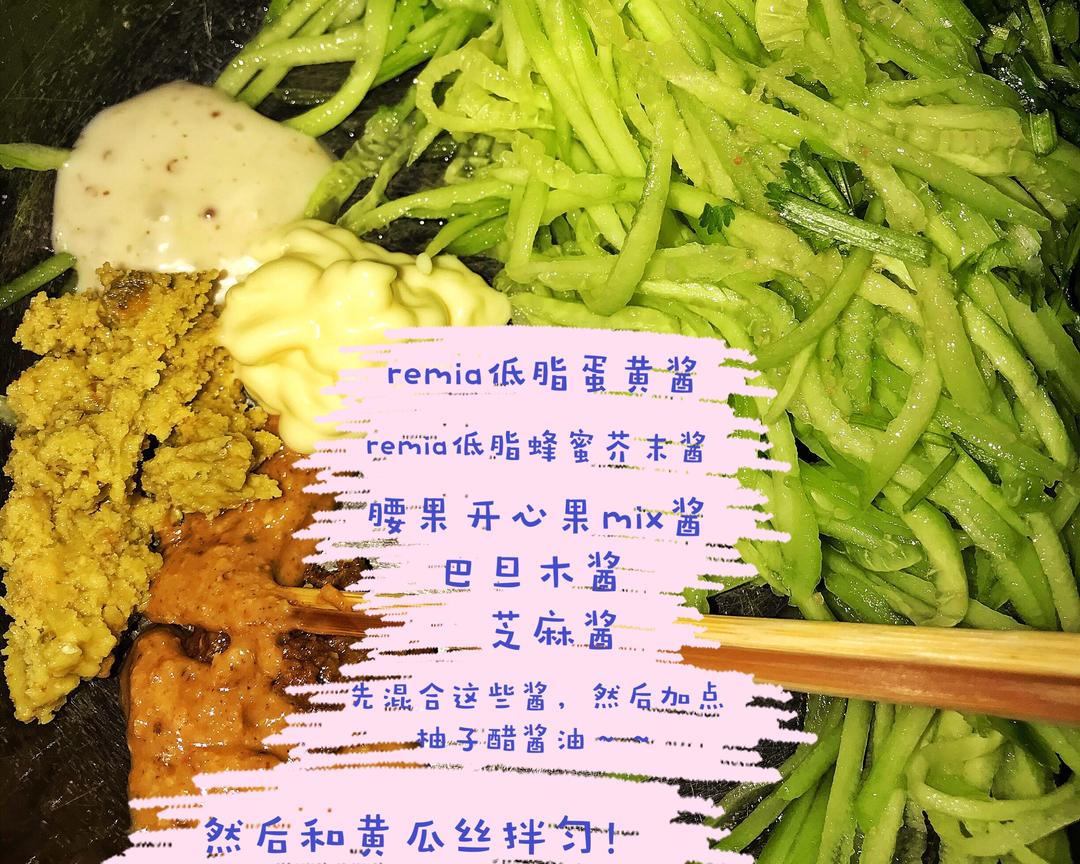 remia低脂蛋黄酱
remia低脂蜂蜜芥末酱
腰果开心果mix酱
巴旦木酱
芝麻酱
先混合这些酱，然后加点
柚子醋酱油～～
然后和黄瓜丝拌匀！